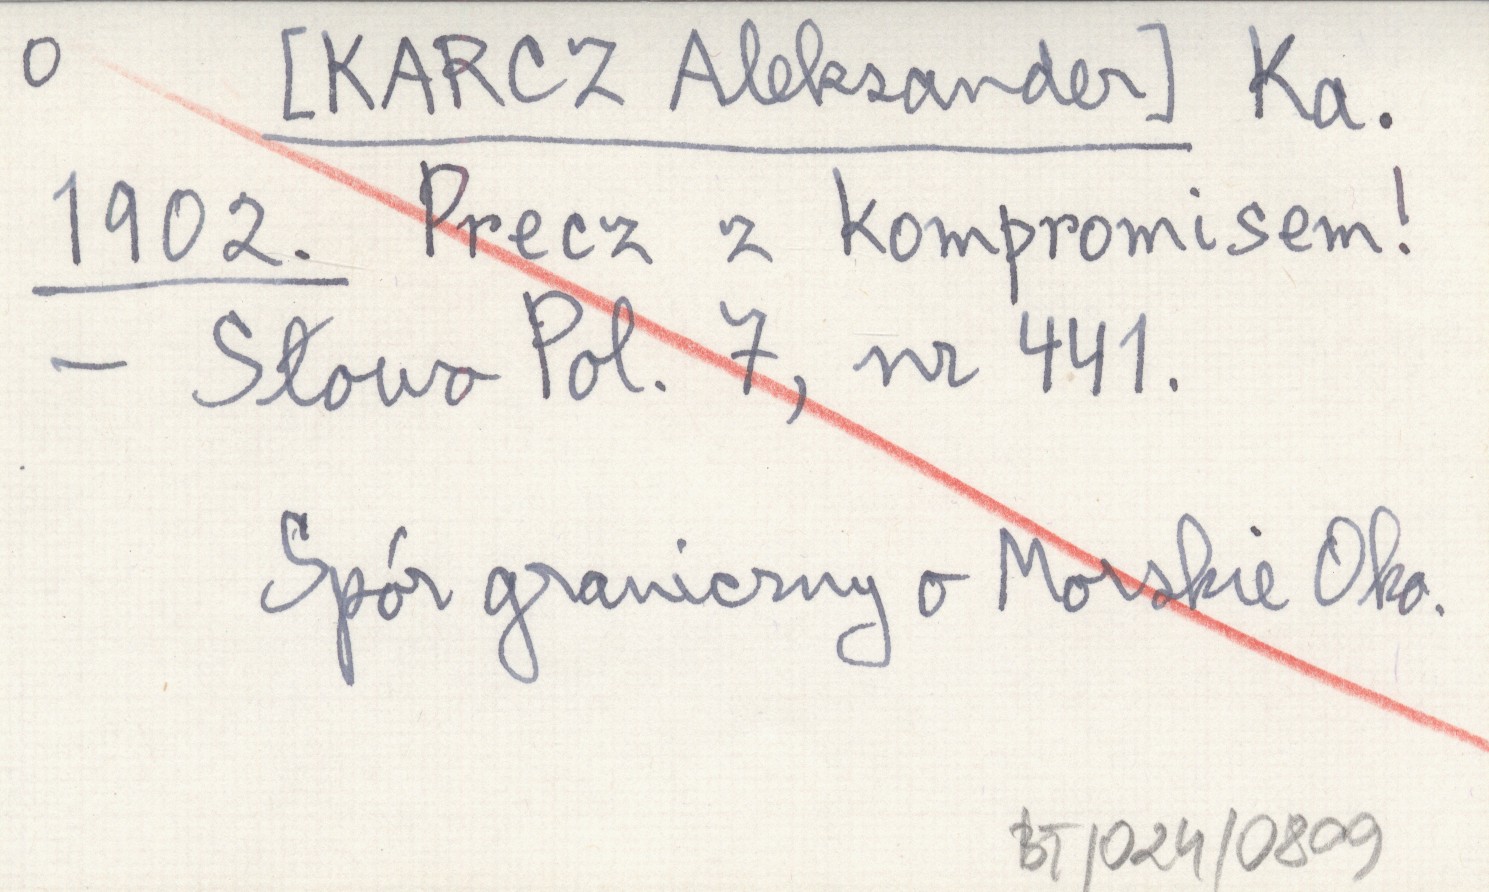 O [KARCZ Aleksander] Ka.
1902. Precz z kompromisem!
– Słowo Pol. 7, nr 441.
Spór graniczny o Morskie Oko.
BT/024/0809